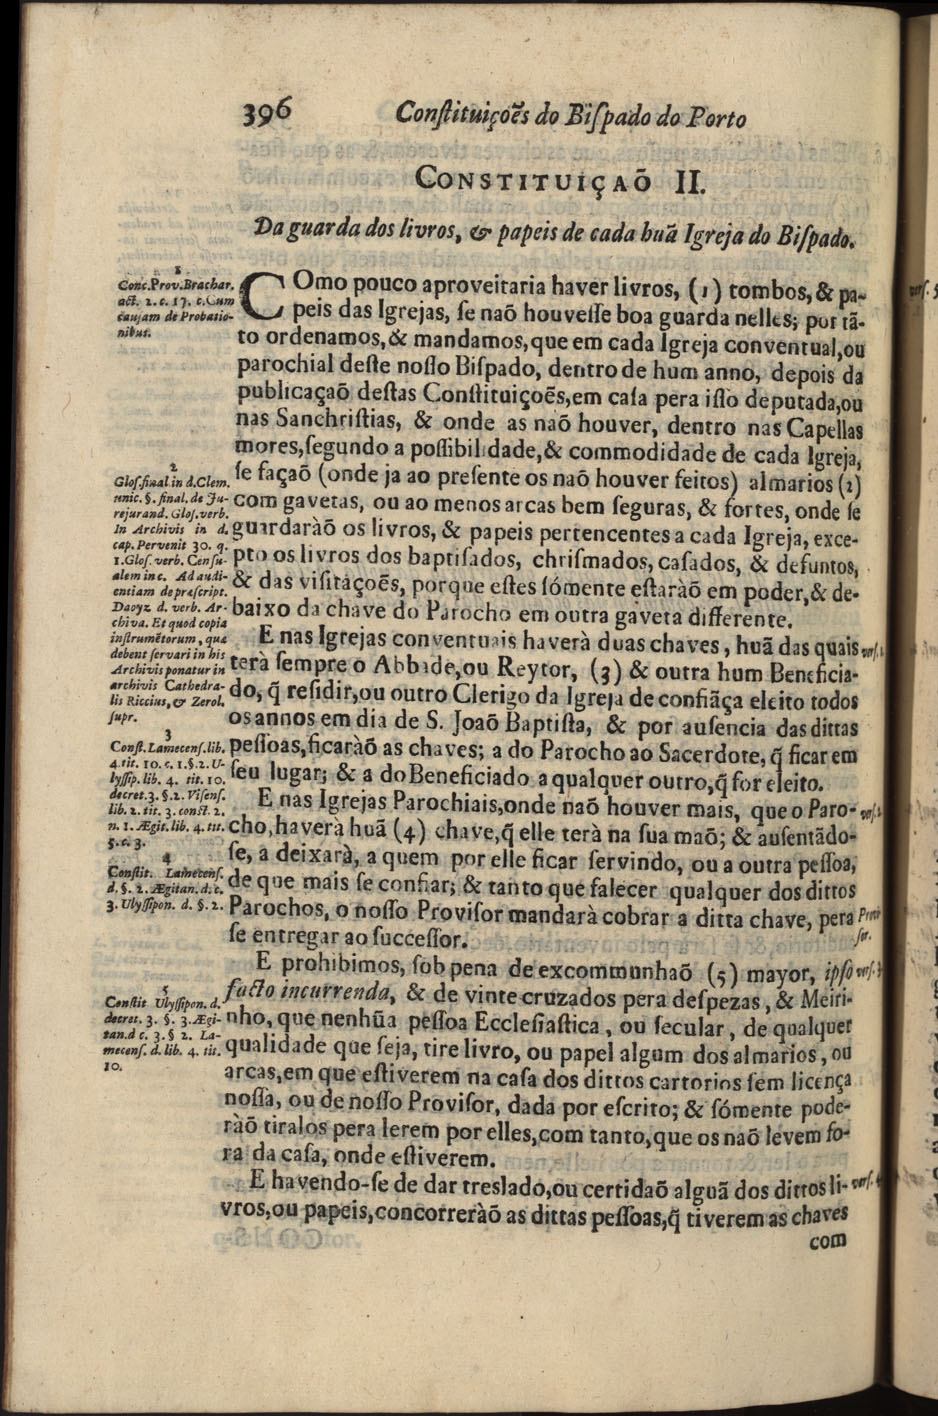 396 Conſtituiçoẽs do Biſpado do Porto
CONSTITUIÇAÕ II.
Da guarda dos livros, & papeis de cada huã Igreja do Biſpado.
COmo pouco aproveitaria haver livros, (1) tombos, & pa-
peis das Igrejas, ſe naõ houveſſe boa guarda nelles; por tã-
to ordenamos, & mandamos, que em cada Igreja conventual, ou
parochial deſte noſſo Biſpado, dentro de hum anno, depois da
publicaçaõ deſtas Conſtituiçoẽs, em caſa pera iſſo deputada, ou
nas Sanchriſtias, & onde as naõ houver, dentro nas Capellas
mores, ſegundo a poſſibilidade, & commodidade de cada Igreja,
ſe façaõ (onde ja ao preſente os naõ houver feitos) almarios (2)
com gavetas, ou ao menos arcas bem ſeguras, & fortes, onde ſe
guardaràõ os livros, & papeis pertencentes a cada Igreja, exce-
pto os livros dos baptiſados, chriſmados, caſados, & defuntos,
& das viſitaçoẽs, porque eſtes ſómente eſtaràõ em poder, & de-
baixo da chave do Parocho em outra gaveta differente.
E nas Igrejas conventuais haverà duas chaves, huã das quais
terà ſempre o Abbade, ou Reytor, (3) & outra hum Beneficia-
do, q̃ reſidir, ou outro Clerigo da Igreja de confiãça eleito todos
os annos em dia de S. Joaõ Baptiſta, & por auſencia das dittas
peſſoas, ficaràõ as chaves; a do Parocho ao Sacerdote, q̃ ficar em
ſeu lugar; & a do Beneficiado a qualquer outro, q̃ for eleito.
E nas Igrejas Parochiais, onde naõ houver mais, que o Paro-
cho, haverà huã (4) chave, q̃ elle terà na ſua maõ; & auſentãdo-
ſe, a deixarà, a quem por elle ficar ſervindo, ou a outra peſſoa,
de que mais ſe confiar; & tanto que falecer qualquer dos dittos
Parochos, o noſſo Proviſor mandarà cobrar a ditta chave, pera
ſe entregar ao ſucceſſor.
E prohibimos, ſob pena de excommunhaõ (5) mayor, ipſo
facto incurrenda, & de vinte cruzados pera deſpezas, & Meiri-
nho, que nenhũa peſſoa Eccleſiaſtica, ou ſecular, de qualquer
qualidade que ſeja, tire livro, ou papel algum dos almarios, ou
arcas, em que eſtiverem na caſa dos dittos cartorios ſem licença
noſſa, ou de noſſo Proviſor, dada por eſcrito; & ſómente pode-
ràõ tiralos pera lerem por elles, com tanto, que os naõ levem fo-
ra da caſa, onde eſtiverem.
E havendo-ſe de dar treslado, ou certidaõ alguã dos dittos li-
vros, ou papeis, concorreràõ as dittas peſſoas, q̃ tiverem as chaves
com
1
Conc. Prov. Brachar.
act. 2. c. 17. c. Cum
cauſam de Probatio-
nibus.
2
Gloſ. final in d. Clem.
unic. §. final. de Ju-
rejurand. Gloſ. verb.
In Archivis in d.
cap. Pervenit 30. q.
1. Gloſ. verb. Cenſu-
alem in c. Ad audi-
entiam de præſcript.
Daoyz d. verb. Ar-
chiva. Et quod copia
inſtrumẽtorum, quæ
debent ſervari in his
Archivis ponatur in
archivis Cathedra-
lis Riccius, & Zerol.
ſupr.
3
Conſt. Lamecenſ. lib.
4. tit. 10. c. 1. §. 2. U-
lyſſip. lib. 4. tit. 10.
decret. 3. §. 2. Viſenſ.
lib. 2. tit. 3. conſt. 2.
n. 1. Ægit. lib. 4. tit.
5. c. 3.
4
Conſtit. Lamecenſ.
d. §. 2. Ægitan. d. c.
3. Ulyſſipon. d. §. 2.
5
Conſtit Ulyſſipon. d.
decret. 3. §. 3. Ægi-
tan. d c. 3. § 2. La-
mecenſ. d. lib. 4. tit.
10.
verſ. 1
verſ. 2
Provi
ſor.
verſ. 3
verſ. 4